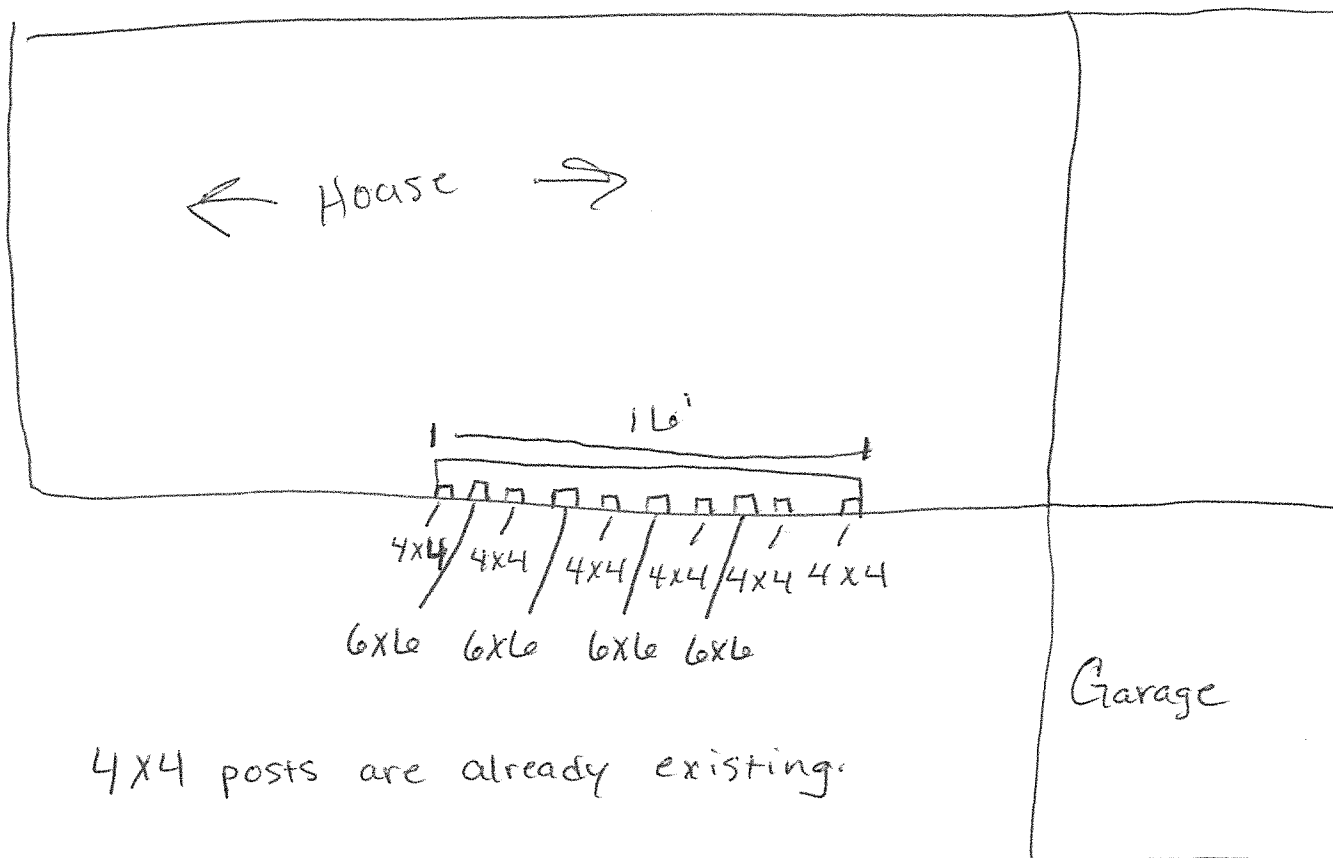 House
16'
4x4 4x4 4x4 4x4 4x4 4x4
6x6 6x6 6x6 6x6
Garage
4x4 posts are already existing.